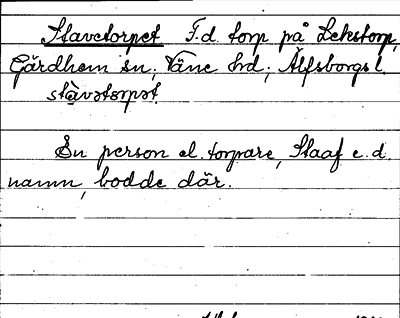 Stavetorpet F.d. torp på Lekstorp,
Gärdhem sn, Väne hd, Älfsborgs l.
stàvətɔrpət.
En person el. torpare, Staaf e.d.
namn, bodde där.